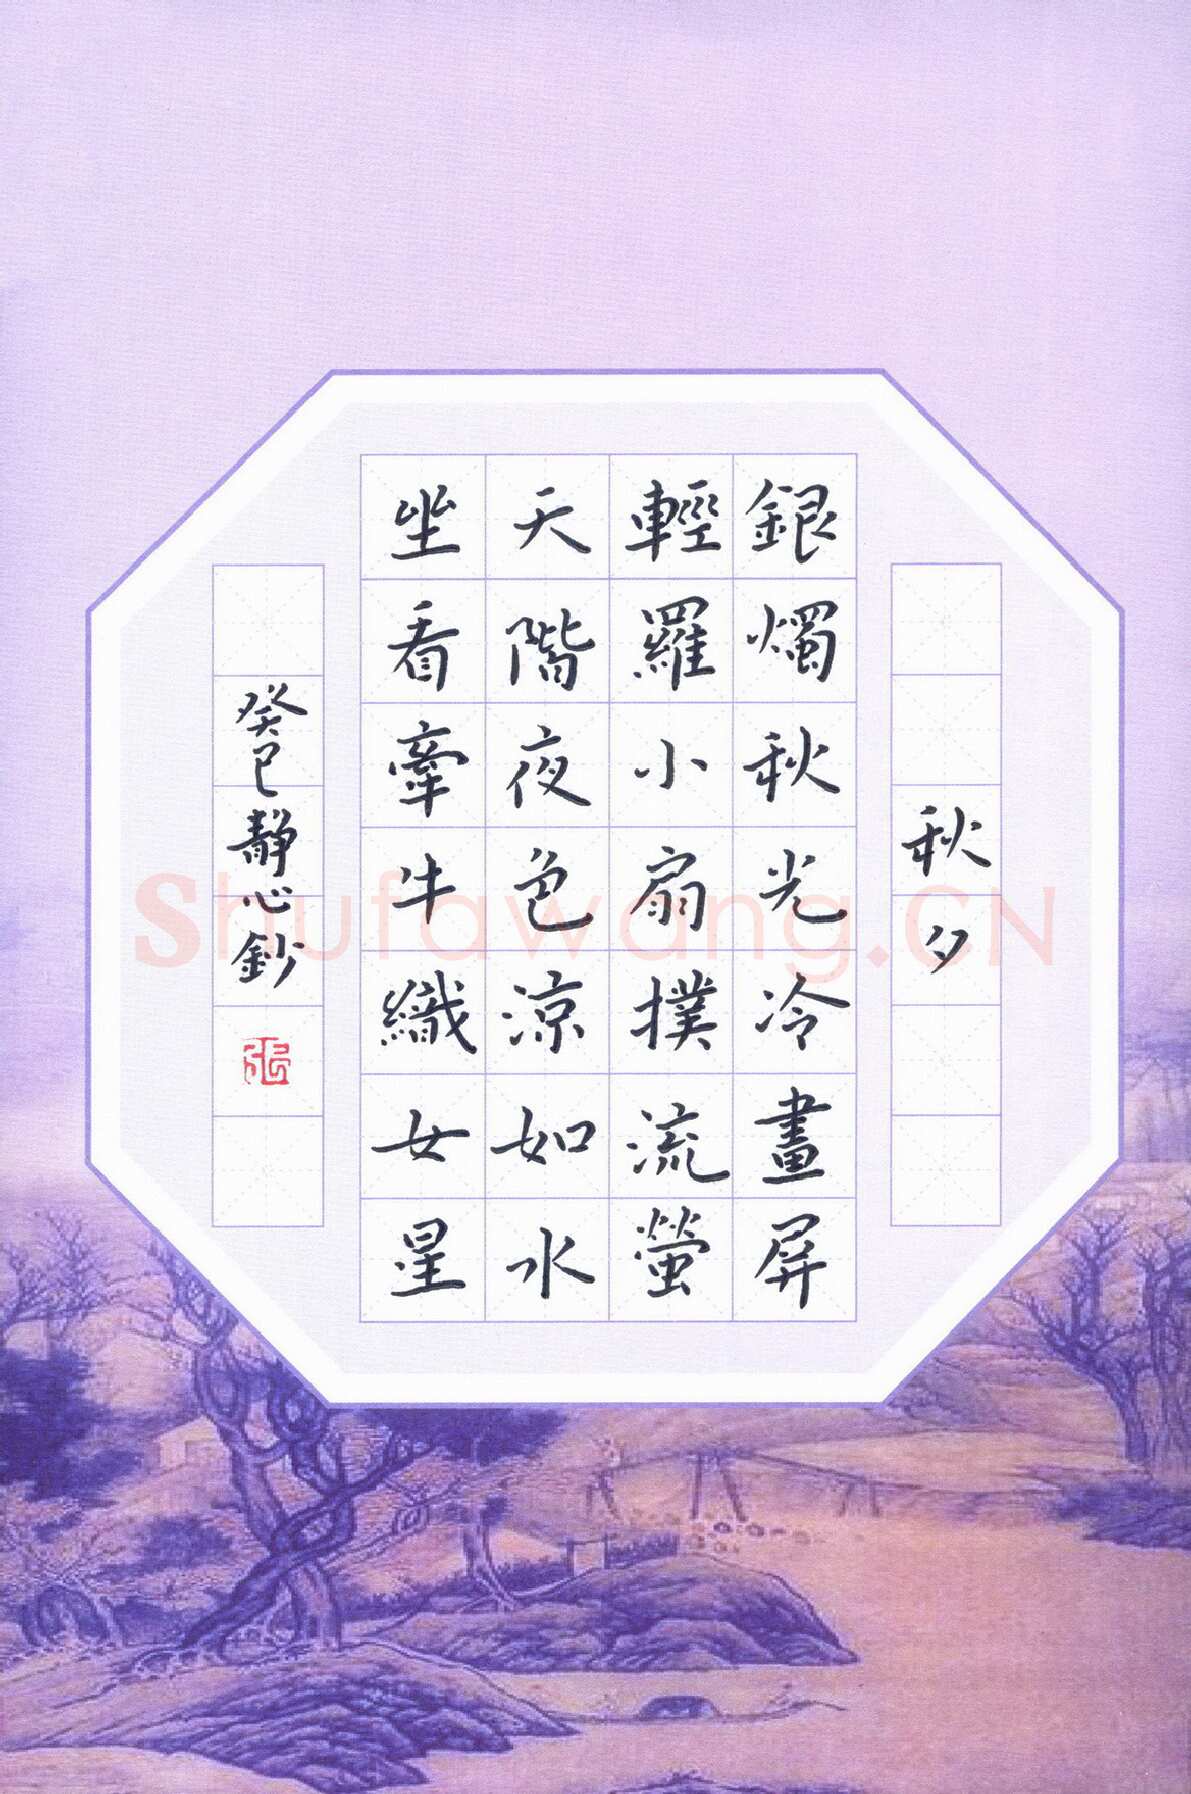 秋夕
銀燭秋光冷畫屏
輕羅小扇撲流螢
天階夜色涼如水
坐看牽牛織女星
癸巳靜心鈔
Shufawang.CN